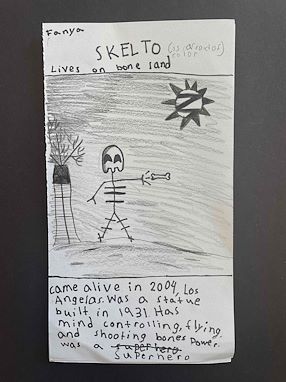 Fanya
SKELTO
Lives on bone land
came alive in 2004, Los
Angelas. Was a statue
built in 1931. Has
mind controlling, flying
and shooting bones Power.
was a superhero
Superhero